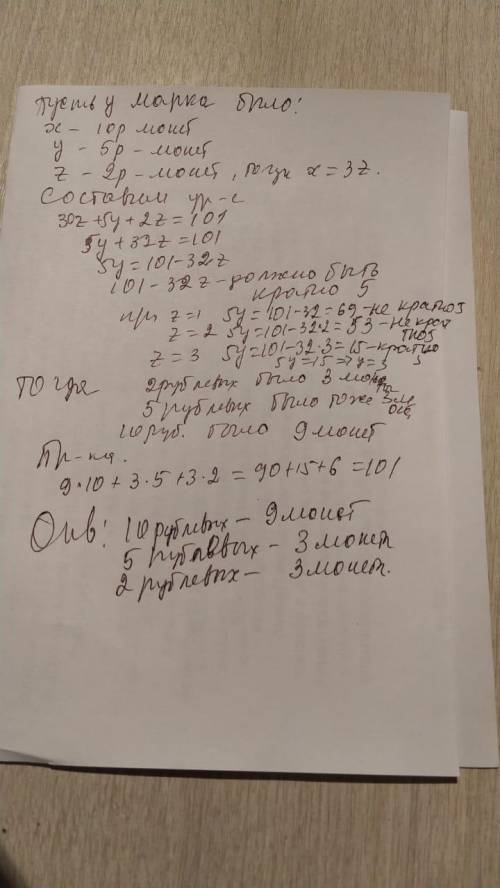 Пусть у Марка было:
x – 10р монет
y – 5р – монет
z – 2р – монет, тогда x = 3z.
Составим ур-е
30z + 5y + 2z = 101
5y + 32z = 101
5y = 101 - 32z
101 - 32z - должно быть
кратно 5
при z=1 5y = 101-32 = 69 - не кратно 5
z = 2 5y = 101-32·2 = 53 - не крат
но5
z = 3 5y = 101-32·3 = 15 - кратно
5y=15 => y=3 5
Тогда 2рублевых было 3 моне
5 рублевых было тоже 3м
10 руб. было 9 монет
Пр-ка.
9·10 + 3·5 + 3·2 = 90+15+6 = 101
Отв: 10 рублевых – 9 монет
5 рублевых – 3 монет
2 рублевых – 3 монет.